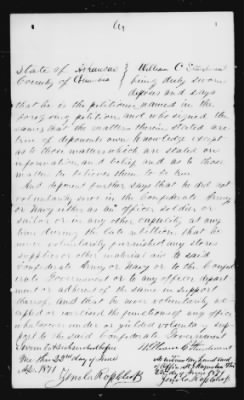 State of Arkansas } William C
County of } being duly sworn
deposes and says
that he is the petitioner named in the
foregoing petition and who signed the
same that the matters therein stated are
true of deponents own knowledge except
as to those matters which are stated on
information and belief and as to those
matters he believes them to be true
And deponent further says that he did not
voluntarily serve in the Confederate Army
or Navy either as an officer soldier or
sailor or in any other capacity at any
time during the late rebellion that he
never voluntarily furnished any stores
supplies or other material aid to said
Confederate Army or Navy or to the Confed
erate Government or to any officer depart
ment or adherent of the same in support
thereof and that he never voluntarily ac
cepted or exercised the functions of any office
whatsoever under or yielded voluntary sup
port to the said Confederate Government
Sworn to & subscribed before
me this 23rd day of June
1871
William C